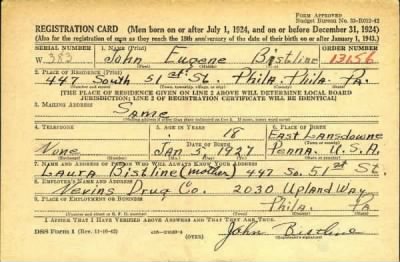 Form Approved
Budget Bureau No. 33-R012-42
REGISTRATION CARD—(Men born on or after July 1, 1924, and on or before December 31, 1924)
(Also for the registration of men as they reach the 18th anniversary of the date of their birth on or after January 1, 1943.)
SERIAL NUMBER 1. NAME (Print) ORDER NUMBER
W 383 John Eugene Bistline 13156
(First) (Middle) (Last)
2. PLACE OF RESIDENCE (Print)
447 South 51st St. Phila. Phila. Pa.
(Number and street) (Town, township, village, or city) (County) (State)
[THE PLACE OF RESIDENCE GIVEN ON LINE 2 ABOVE WILL DETERMINE LOCAL BOARD
JURISDICTION; LINE 2 OF REGISTRATION CERTIFICATE WILL BE IDENTICAL]
3. MAILING ADDRESS
Same
4. TELEPHONE 5. AGE IN YEARS 6. PLACE OF BIRTH
18 East Lansdowne
DATE OF BIRTH
None Jan 5, 1927 Penna. U.S.A.
(Exchange) (Number) (Mo.) (Day) (Yr.) (State or country)
7. NAME AND ADDRESS OF PERSON WHO WILL ALWAYS KNOW YOUR ADDRESS
Laura Bistline (mother) 447 So. 51st St.
8. EMPLOYER'S NAME AND ADDRESS
Nevins Drug Co. 2030 Upland Way
9. PLACE OF EMPLOYMENT OR BUSINESS
Phila. Pa
(Number and street or R. F. D. number) (Town) (County) (State)
I AFFIRM THAT I HAVE VERIFIED ABOVE ANSWERS AND THAT THEY ARE TRUE.
DSS Form 1 (Rev. 11-16-42) (over) John Bistline
(Registrant's signature)